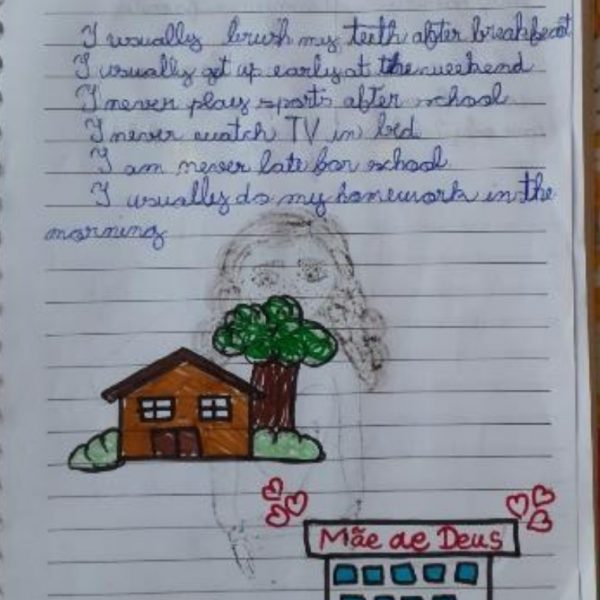 I usually brush my teeth after breakfast
I usually get up early at the weekend
I never play sports after school
I never watch TV in bed
I am never late for school
I usually do my homework in the
morning
Mãe de Deus